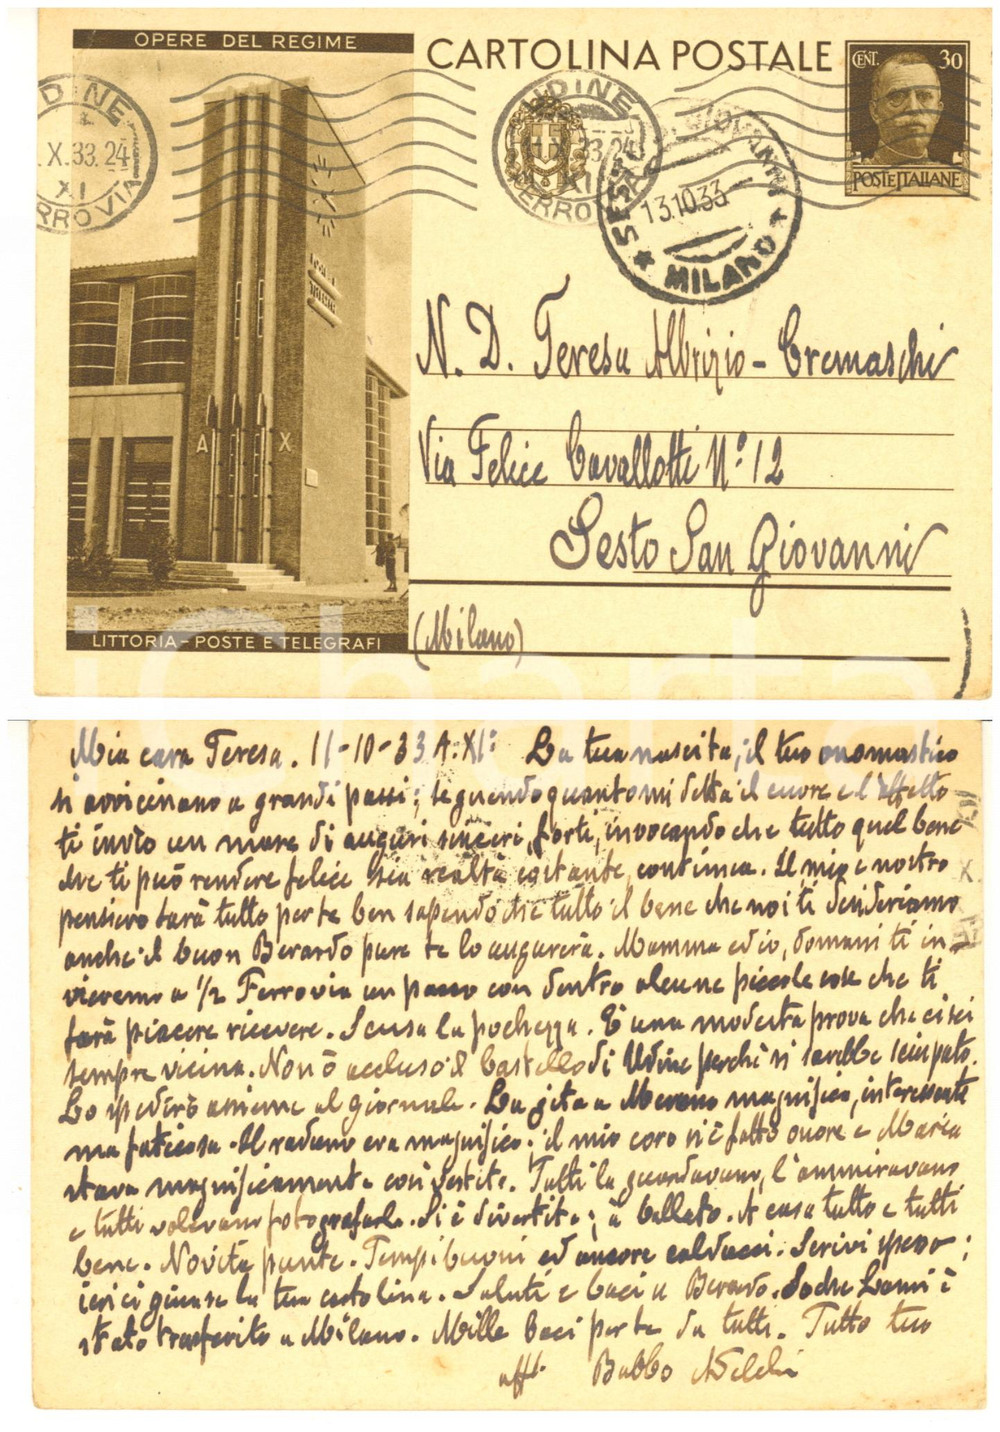 OPERE DEL REGIME
CARTOLINA POSTALE
CENT. 30
POSTE ITALIANE
UDINE
X.33.24
XI
FERROVIA
UDINE
33.24
XI
FERROVIA
SESTO S. GIOVANNI
13.10.33
MILANO
A X
LITTORIA - POSTE E TELEGRAFI
N. D. Teresa Albrizio - Cremaschi
Via Felice Cavallotti N° 12
Sesto San Giovanni
(Milano)
Mia cara Teresa. 11-10-33 A: XI: La tua nascita, il tuo onomastico
si avvicinano a grandi passi; seguendo quanto mi detta il cuore e l'affetto
ti invio un mare di auguri sinceri, forti, invocando che tutto quel bene
che ti può rendere felice sia realtà costante, continua. Il mio e nostro
pensiero sarà tutto per te ben sapendo che tutto il bene che noi ti desideriamo
anche il buon Berardo pure te lo augurerà. Mamma ed io, domani ti in-
vieremo a 1/2 Ferrovia un pacco con dentro alcune piccole cose che ti
farà piacere ricevere. Scusa la pochezza. È una modesta prova che ci sei
sempre vicina. Non ò accluso il Castello di Udine perchè si sarebbe sciupato.
Lo spedirò assieme al giornale. La gita a Merano magnifica, interessante
ma faticosa. Il raduno era magnifico; il mio coro si è fatto onore e Maria
stava magnificamente così vestita. Tutti la guardavano, l'ammiravano
e tutti volevano fotografarla. Si è divertita; à ballato. A casa tutto e tutti
bene. Novità punte. Tempi buoni ed ancora calducci. Scrivi spesso;
ieri ci giunse la tua cartolina. Saluti e baci a Berardo.
stato trasferito a Milano. Mille baci per te da tutti. Tutto tuo
aff. Babbo